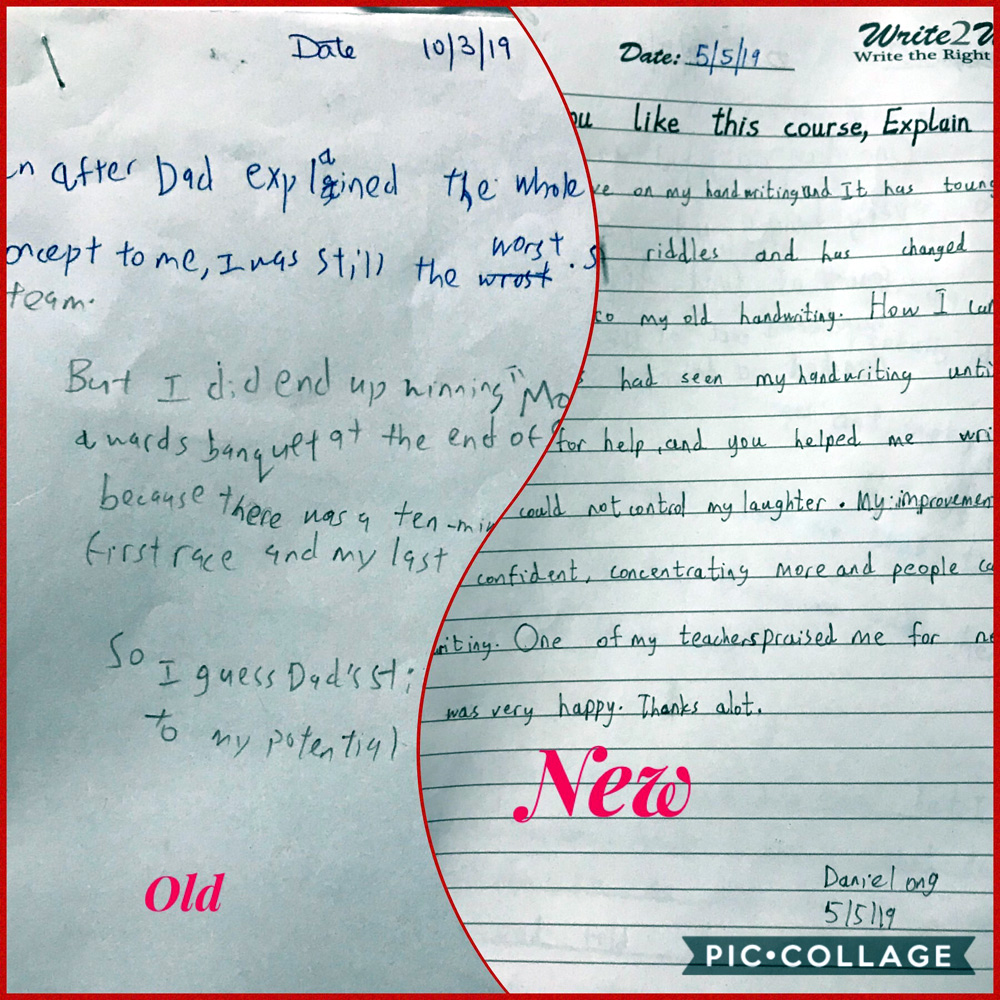 Date 10/3/19
after Dad explained the whole
to me, I was still the wrost worst.
team.
But I did end up winning "Mo
awards banquet at the end of
because there was a ten-min
first race and my last
So I guess Dad's sti
to my potential
Old
Write2W
Write the Right
Date: 5/5/19
ou like this course, Explain
ve on my handwriting and It has toung
riddles and has changed
to my old handwriting. How I
had seen my handwriting unti
for help, and you helped me wri
could not control my laughter. My improvemen
confident, concentrating more and people ca
riting. One of my teachers praised me for ne
was very happy. Thanks alot.
New
Daniel ong
5/5/19
PIC•COLLAGE